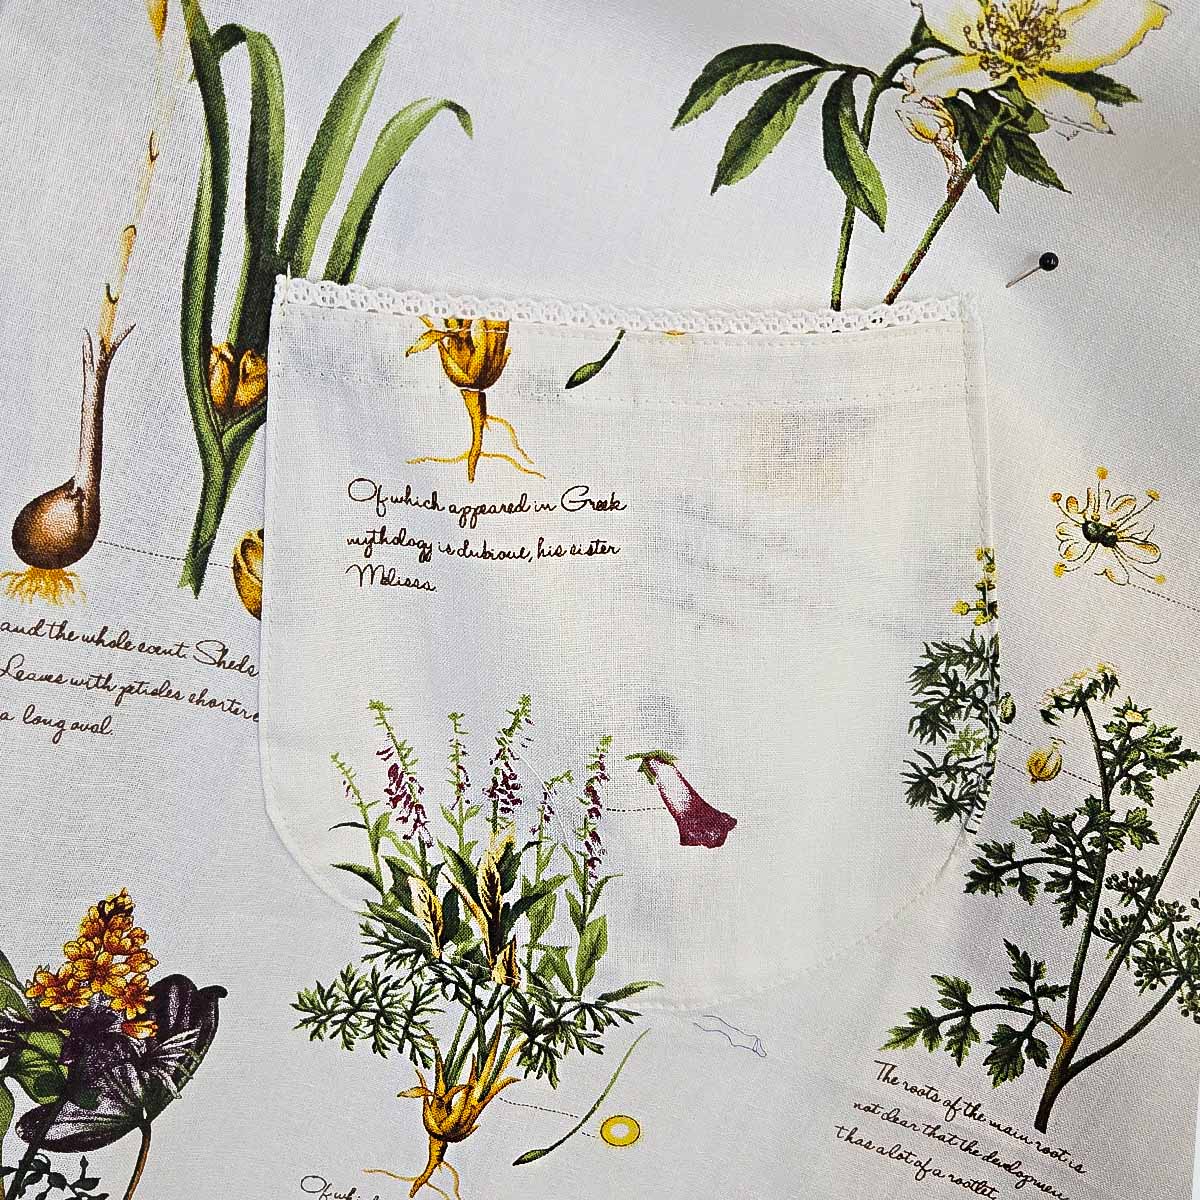 Of which appeared in Greek
mythology is dubioue, his sister
Melissa.
and the whole scent. Sheds
Leaves with petioles shorter
a long oval.
The roots of the main root is
not dear that the development
t has a lot of a rootlet.
Of which